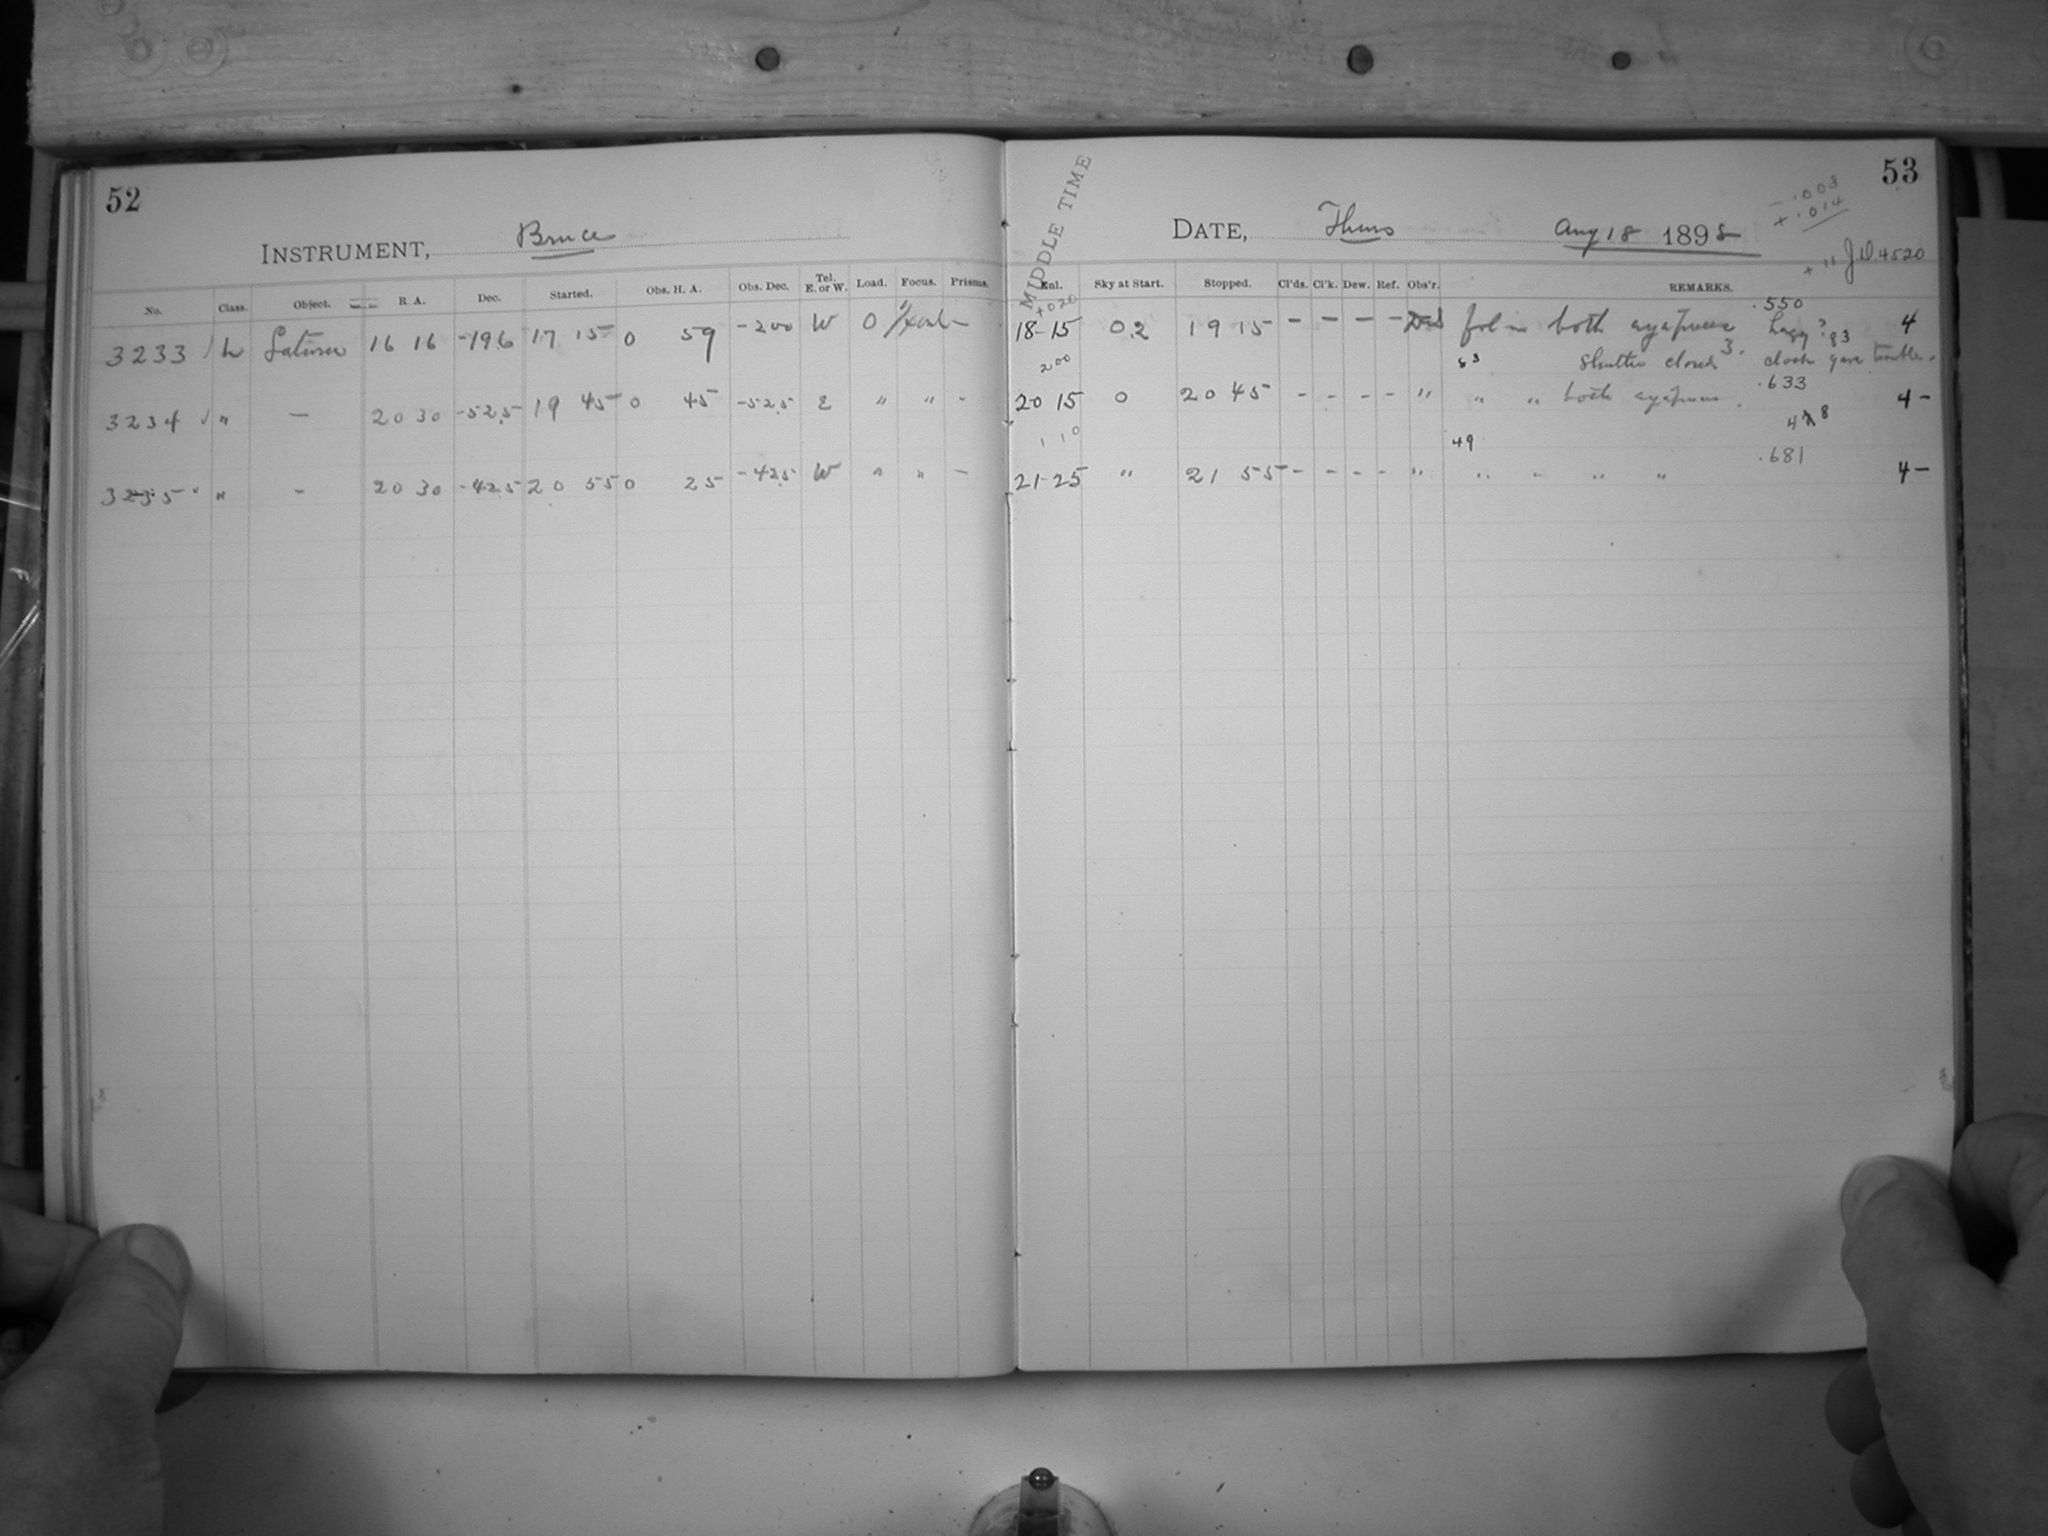 52
INSTRUMENT, Bruce
No. Class. Object. R. A. Dec. Started. Obs. H. A. Obs. Dec. Tel. E. or W. Load. Focus. Prisms.
3233 L Saturn 16 16 -19.6 17 15 0 59 -20.0 W 0
3234 " — 20 30 -52.5 19 45 0 45 -52.5 E " " -
3235 " - 20 30 -42.5 20 55 0 25 -42.5 W " " —
53
MIDDLE TIME
DATE, Thurs Aug 18 1898
- .003
+ .014
+ 11 J.D. 4520
Enl. Sky at Start. Stopped. Cl'ds. Cl'k. Dew. Ref. Obs'r. REMARKS.
+020 .550
18-15 0.2 19 15 - - - - fol in both hazy? 4
200 53 Shutter closed 3. 83 clock gave trouble.
20 15 0 20 45 - - - - " " " both .633 4-
110 49 478
21-25 " 21 55 - - - - " " " " " .681 4-